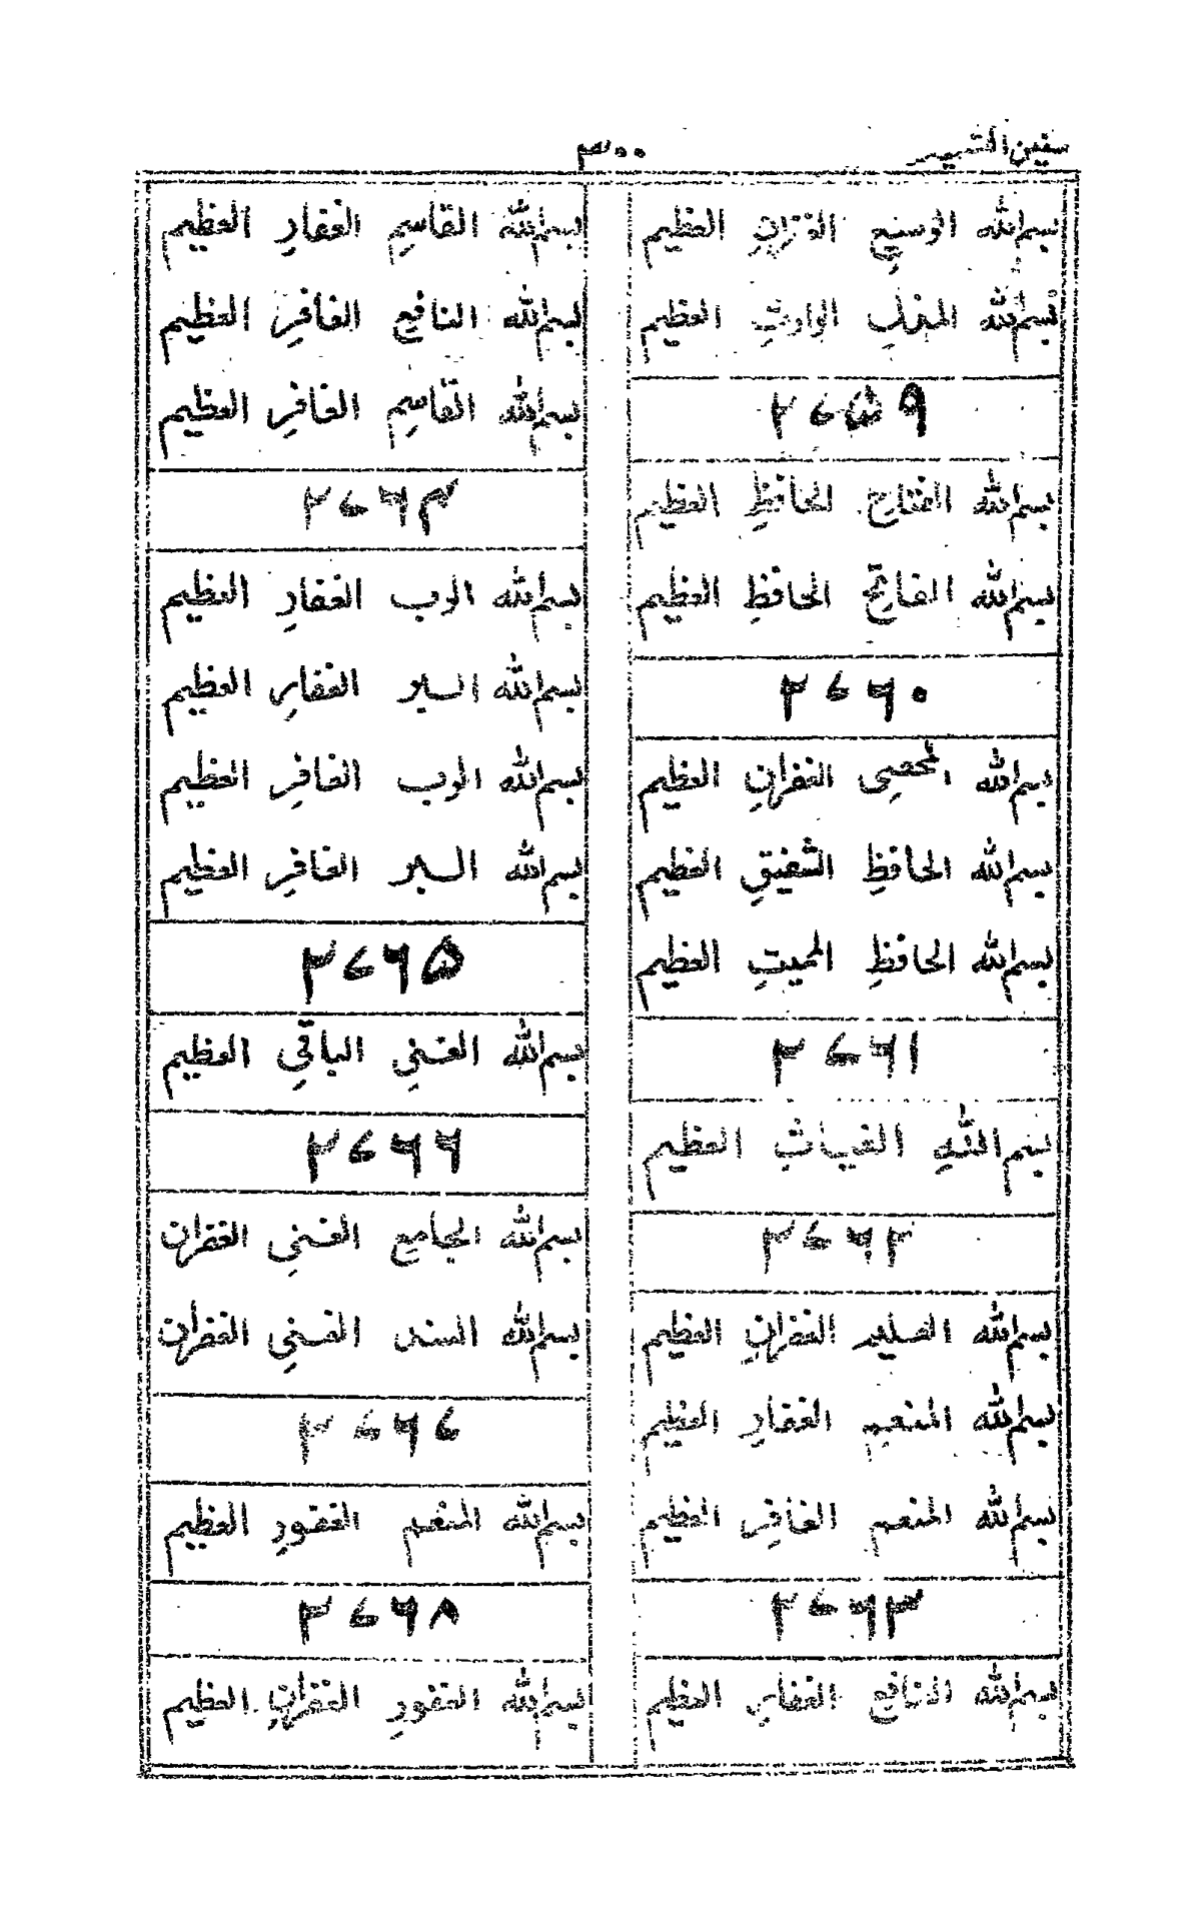 سفين
۳۰۰
بسم الله الوسيع الغفران العظيم
بسم الله المذل الوارث العظيم
۲۷۵۹
بسم الله الفتاح الحافظ العظيم
بسم الله الفاتح الحافظ العظيم
۲۷۶۰
بسم الله المحصى الغفران العظيم
بسم الله الحافظ الشفيق العظيم
بسم الله الحافظ المميت العظيم
۲۷۶۱
بسم الله الغياث العظيم
۲۷۶۲
بسم الله الغفران العظيم
بسم الله المنعم الغفار العظيم
بسم الله المنعم الغافر العظيم
۲۷۶۳
بسم الله النافع الغفار العظيم
بسم الله القاسم الغفار العظيم
بسم الله النافع الغافر العظيم
بسم الله القاسم الغافر العظيم
۲۷۶۴
بسم الله الرب الغفار العظيم
بسم الله الغفار العظيم
بسم الله الرب الغافر العظيم
بسم الله الغافر العظيم
۲۷۶۵
بسم الله الغنى الباقي العظيم
۲۷۶۶
بسم الله الجامع الغنى الغفران
بسم الله السند الغنى الغفران
۲۷۶۷
بسم الله المنعم الغفور العظيم
۲۷۶۸
بسم الله الغفور الغفران العظيم